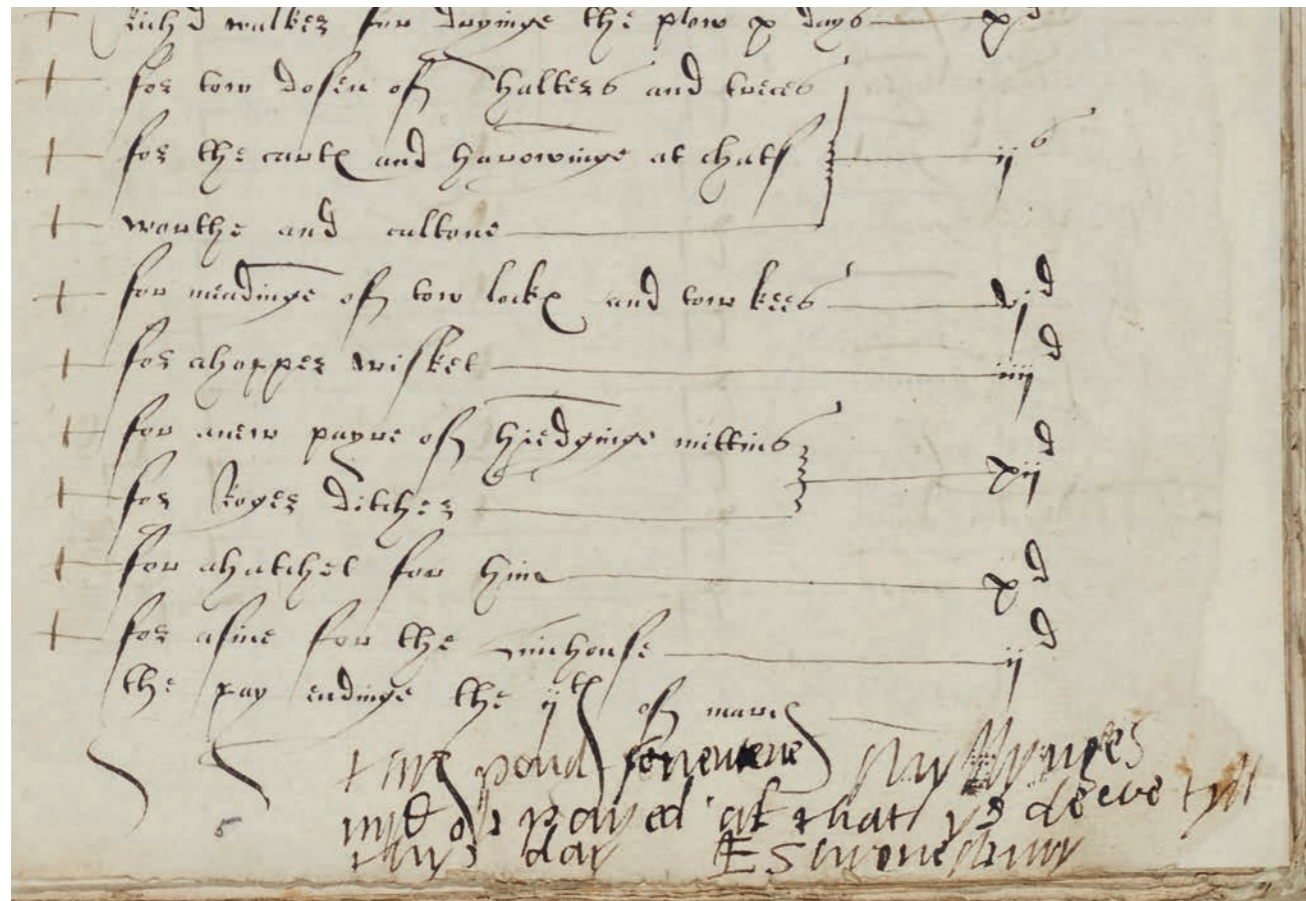 Rich'd walker for dryvinge the plow x days xd
for tow dosen of halters and treces
for the carte and harowinge at chats
worthe and cultone ijs
for mendinge of tow locke and tow kees vjd
for ahopper wisket iiijd
for anew payre of hiedginge mittins
for Roger ditcher xijd
for ahatchet for hime xd
for asive for the limhouse ijd
the pay endinge the ijth of march
pond shyllynges
payed al that ys deeve tyll
thys day ES
5